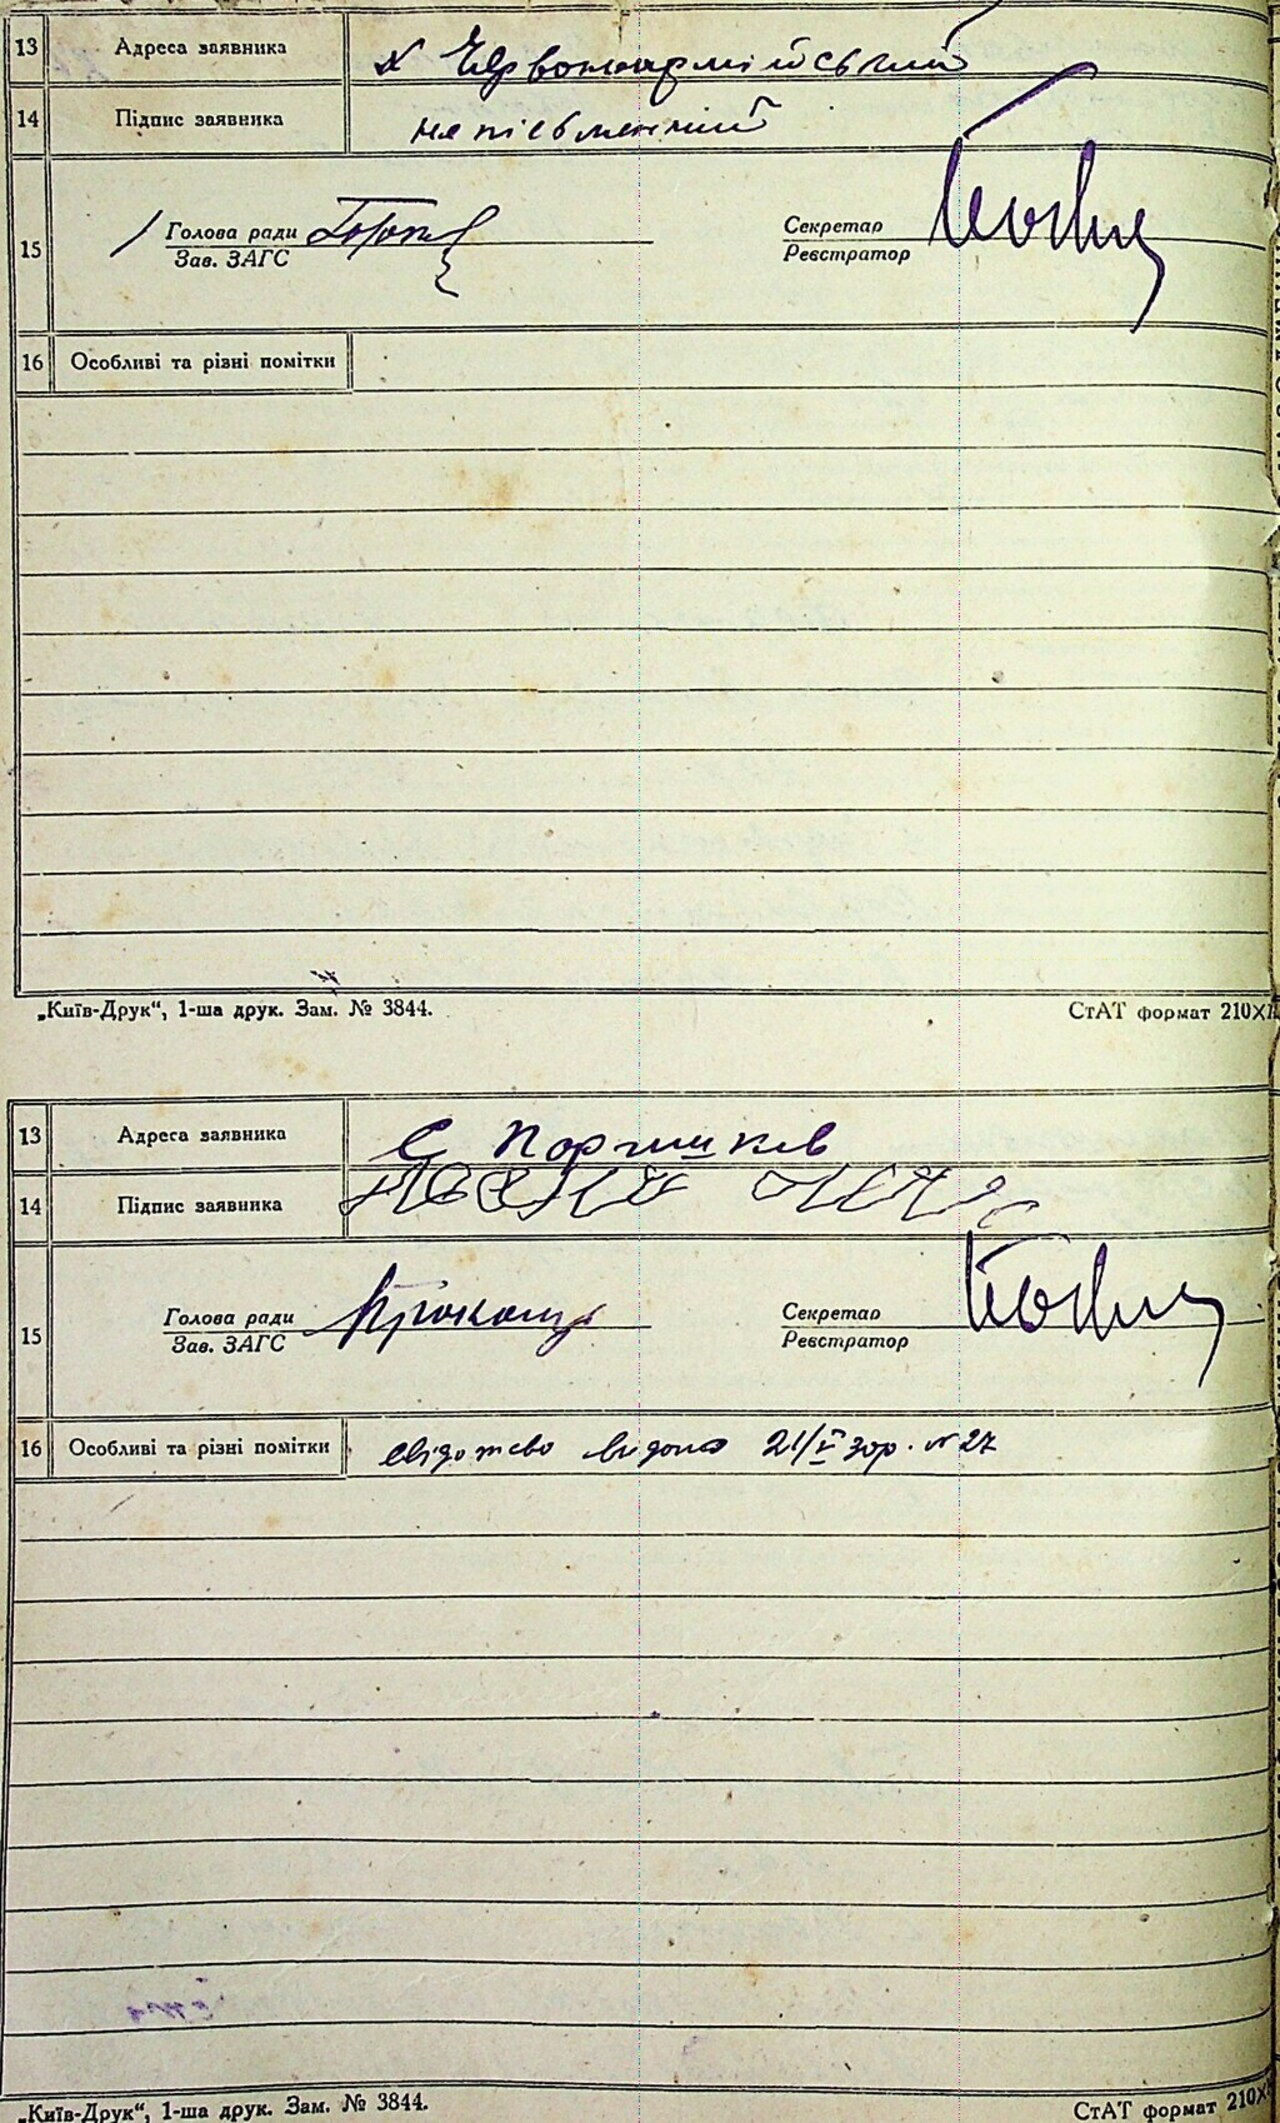 13 Адреса заявника х Червоноармійський
14 Підпис заявника неписьменний
15 Голова ради
Зав. ЗАГС
Секретар
Реєстратор
16 Особливі та різні помітки
„Київ-Друк“, 1-ша друк. Зам. № 3844.
СтАТ формат 210X
13 Адреса заявника С
14 Підпис заявника
15 Голова ради
Зав. ЗАГС
Секретар
Реєстратор
16 Особливі та різні помітки свідотво видано 21/V зор. № 27
„Київ-Друк“, 1-ша друк. Зам. № 3844.
СтАТ формат 210X